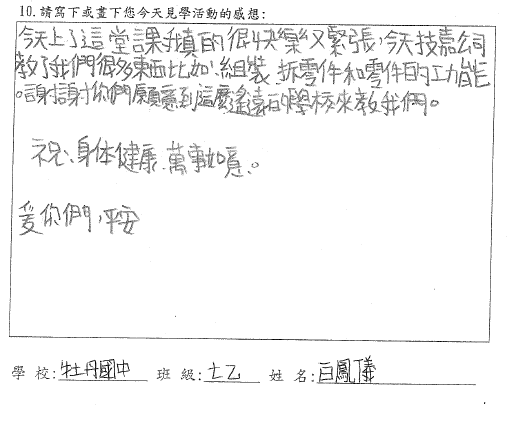 10.請寫下或畫下您今天見學活動的感想:
今天上了這堂課我真的很快樂又緊張,今天技嘉公司
教了我們很多東西比如:組裝.拆零件和零件的功能
。謝謝你們願意到這麼遙遠的學校來教我們。
祝:身体健康.萬事如意。
爱你們,平安
學 校:牡丹國中 班 級:七乙 姓 名:白鳳儀